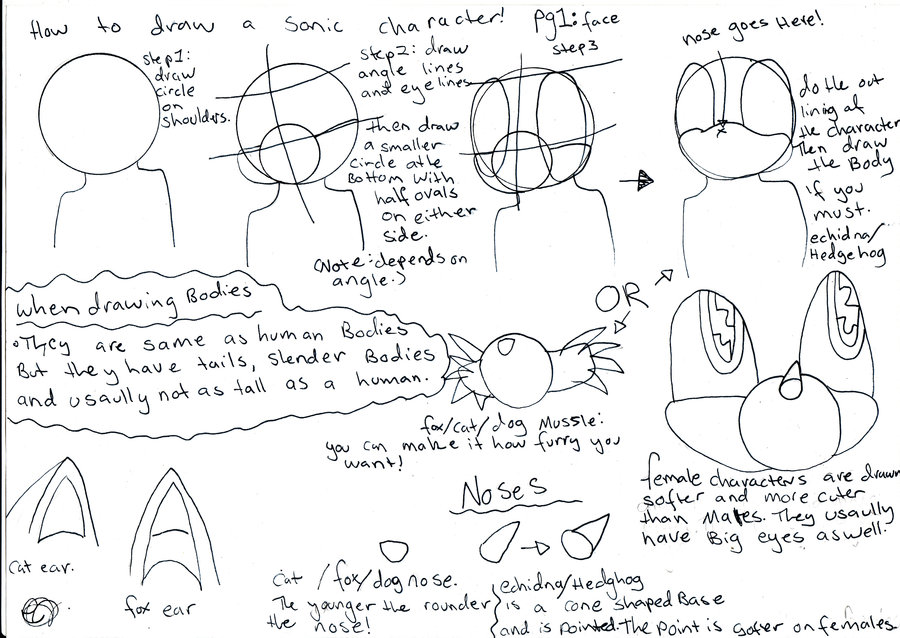 How to draw a Sonic character! pg1: face
step1:
draw
circle
on
shoulders.
step2: draw
angle lines
and eyelines
then draw
a smaller
circle at the
Bottom with
half ovals
on either
side.
(Note: depends on
angle.)
step3
nose goes Here!
do the out
lining of
the character
Then draw
the Body
if you
must.
echidna/
Hedgehog
OR
when drawing Bodies
•They are same as human Bodies
But they have tails, slender Bodies
and usaully not as tall as a human.
fox/cat/dog Mussle:
you can make it how furry you
want!
female characters are drawn
softer and more cuter
than Males. They usaully
have Big eyes aswell.
Noses
cat ear.
fox ear
cat /fox/dog nose.
The younger the rounder
the nose!
echidna/Hedghog
is a cone shaped Base
and is pointed. The point is softer on females.